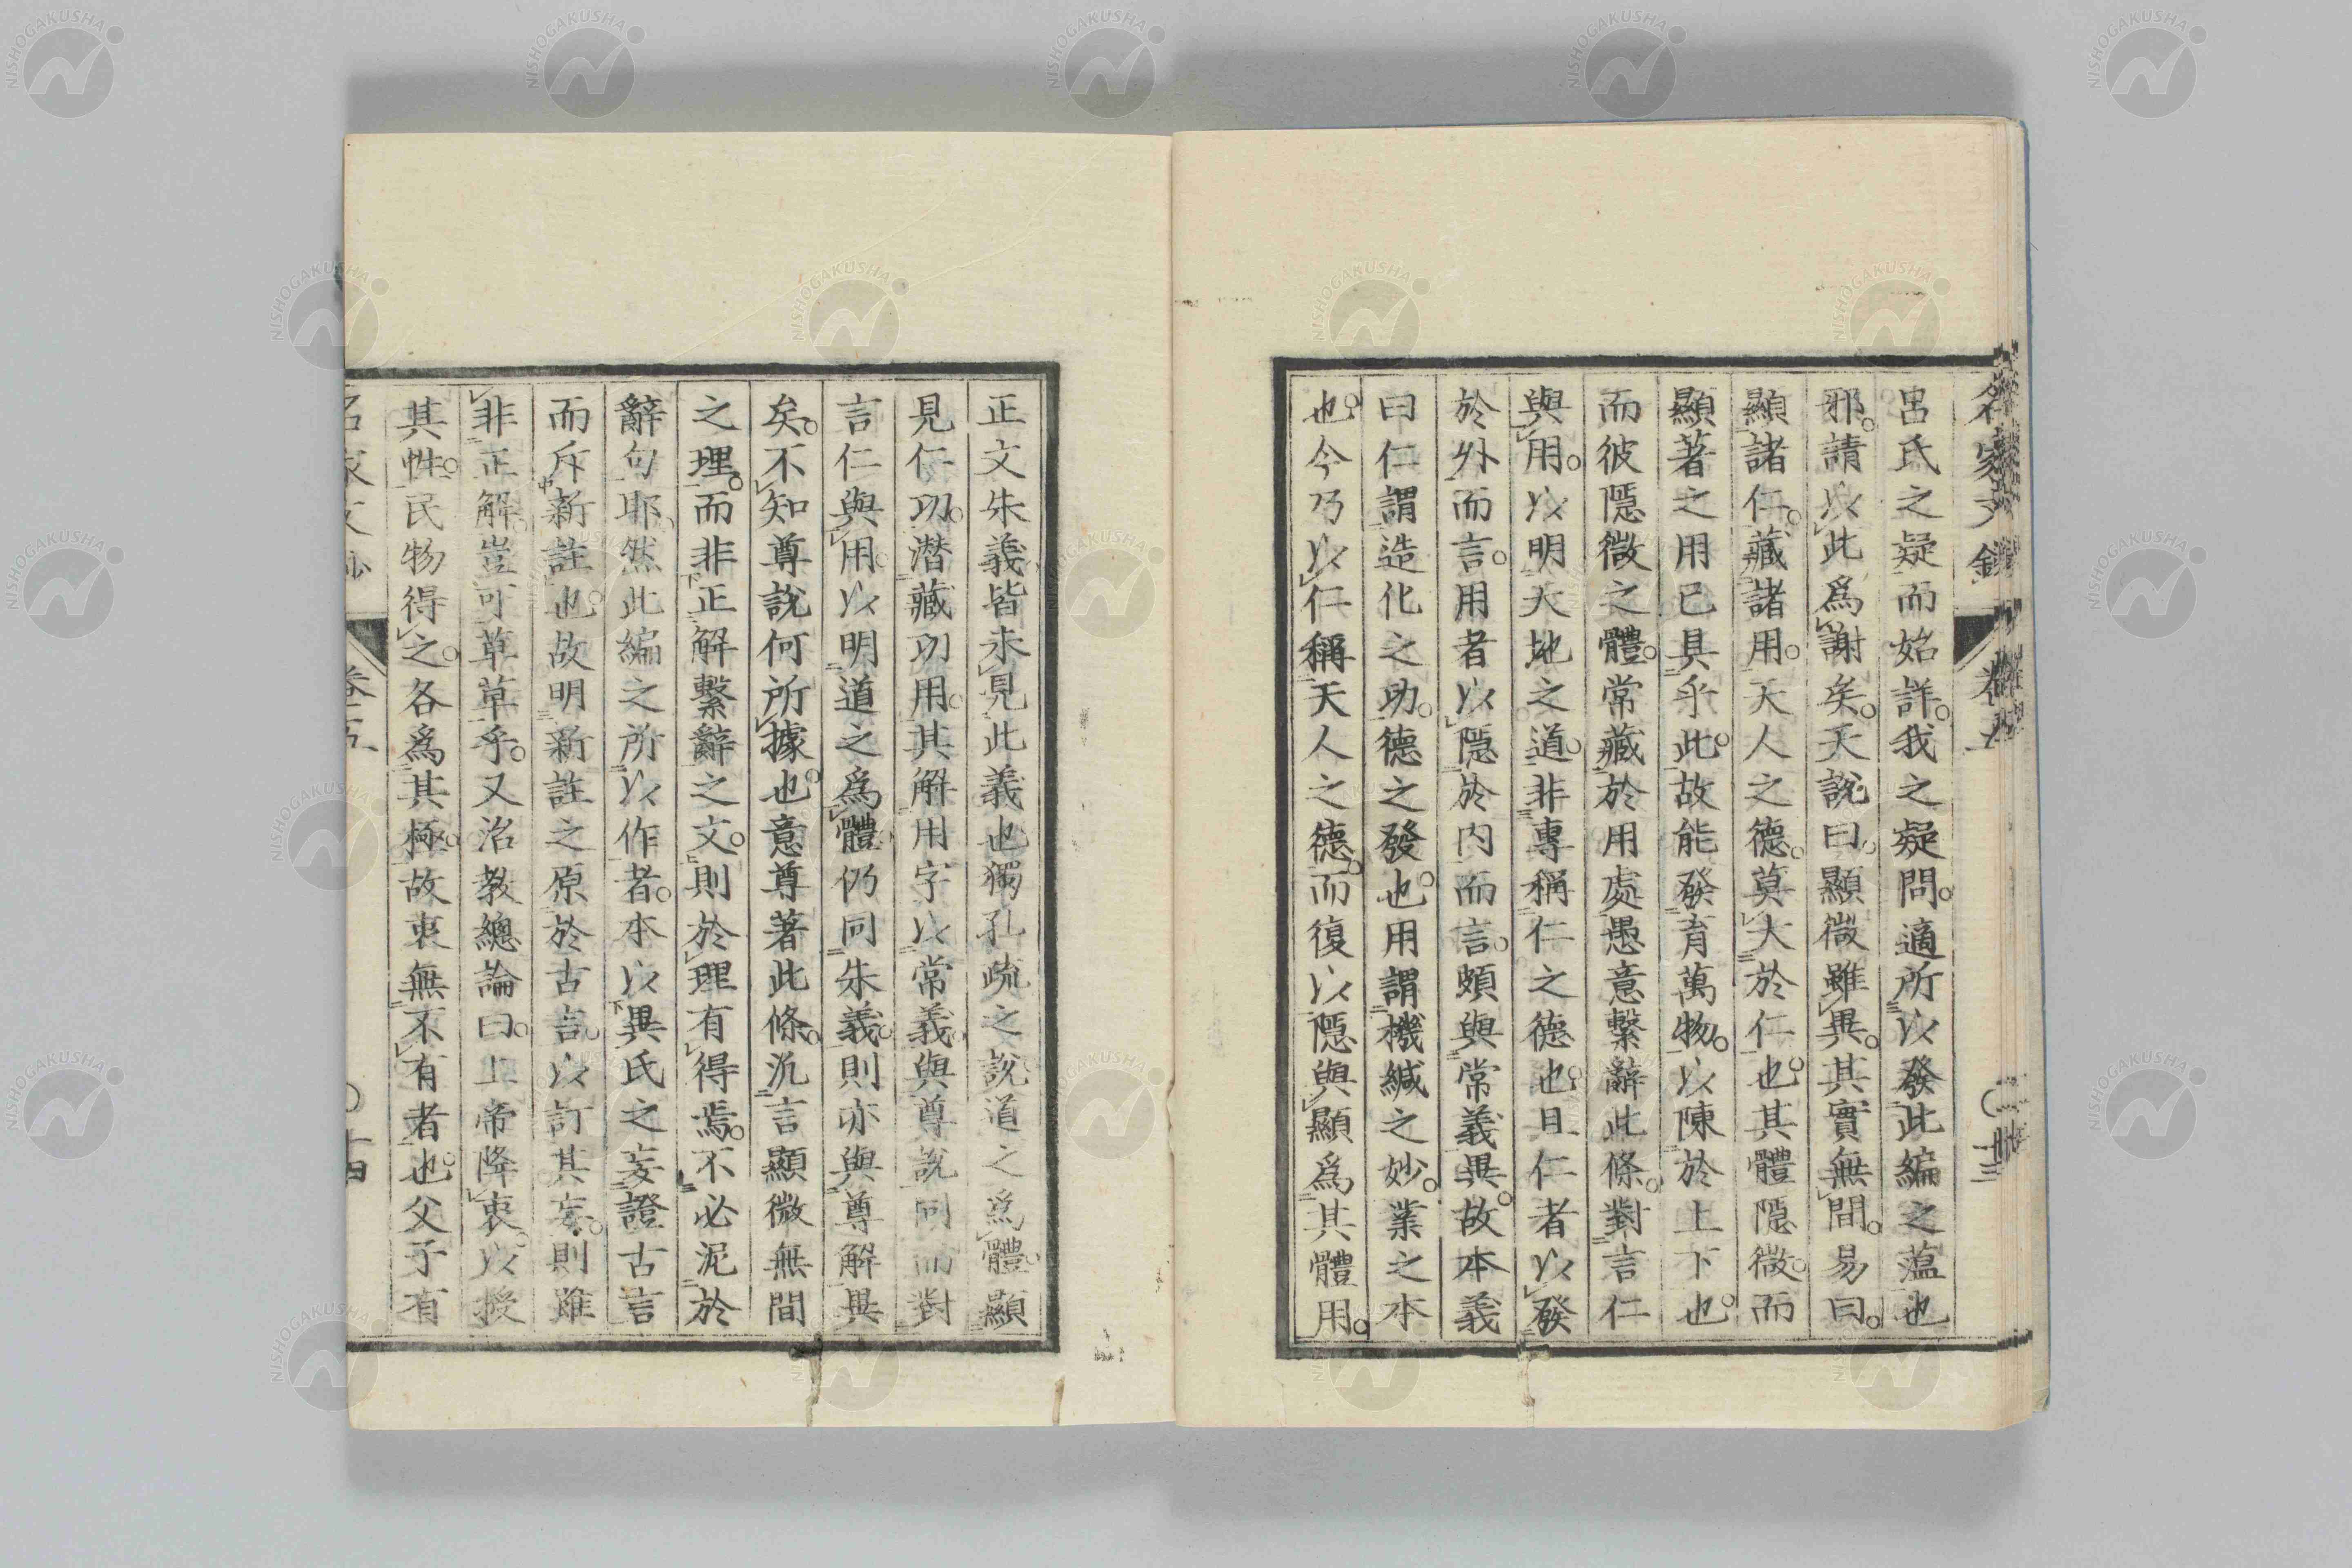 呂氏之疑而始詳。我之疑問。適所以發此編之薀也
邪。請以此爲謝矣。天說曰。顯微雖異。其實無間。易曰。
顯諸仁。藏諸用。天人之德。莫大於仁也。其體隱微。而
顯著之用已具乎此。故能發育萬物。以陳於上下也。
而彼隱微之體。常藏於用處愚意繫辭此條。對言仁
與用。以明天地之道。非專稱仁之德也。且仁者以發
於外而言。用者以隱於內而言。頗與常義異。故本義
曰仁謂造化之功。德之發也。用謂機緘之妙。業之本
也。今乃以仁稱天人之德。而復以隱與顯爲其體用。
正文朱義皆未見此義也獨孔疏之說道之爲體。顯
見仁功。潜藏功用。其解用字以常義。與尊說同而對
言仁與用。以明道之爲體。仍同朱義。則亦與尊解異
矣。不知尊說何所據也。意尊著此條。汎言顯微無間
之理。而非正解繫辭之文。則於理有得焉。不必泥於
辭句耶。然此編之所以作者。本以異氏之妄證古言
而斥新註也。故明新註之原於古言。以訂其妄。則雖
非正解。豈可草草乎。又洺教總論曰。上帝降衷。以授
其性。民物得之。各爲其極。故衷無不有者也。父子有
名家文鈔 卷五 十四